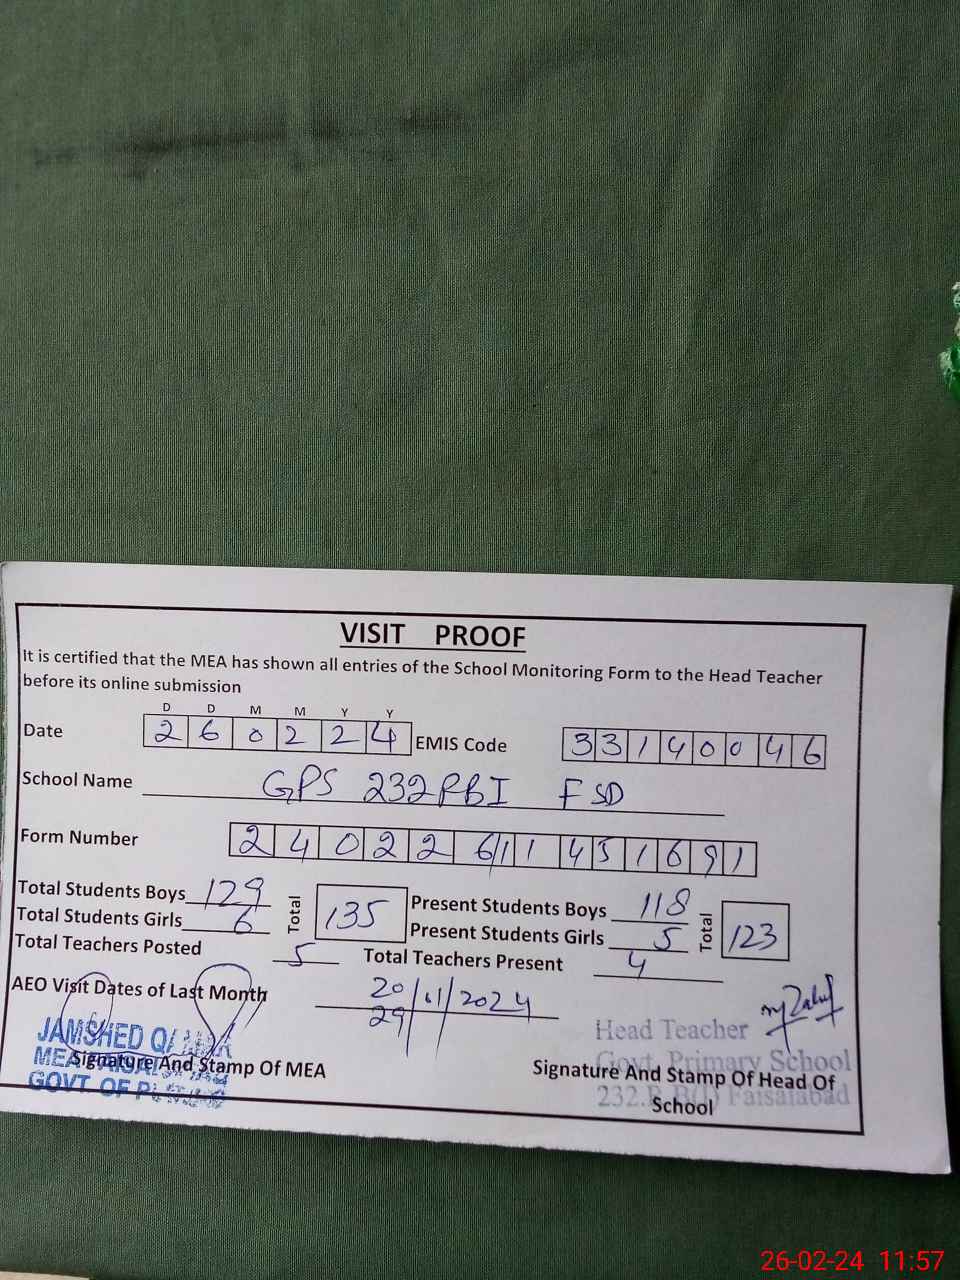 VISIT PROOF
It is certified that the MEA has shown all entries of the School Monitoring Form to the Head Teacher
before its online submission
D D M M Y Y
Date 2 6 0 2 2 4 EMIS Code 3 3 1 4 0 0 4 6
School Name GPS 232 RBI FSD
Form Number 2 4 0 2 2 6 1 1 4 5 1 6 9 1
Total Students Boys 129 Total 135 Present Students Boys 118 Total 123
Total Students Girls 6 Present Students Girls 5
Total Teachers Posted 5 Total Teachers Present 4
AEO Visit Dates of Last Month 20/01/2024
29
JAMSHED
MEA
GOVT. OF
Signature And Stamp Of MEA
Head Teacher
Govt. Primary School
232 Faisalabad
Signature And Stamp Of Head Of
School
26-02-24 11:57